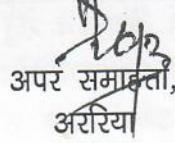 अपर समाहर्ता,
अररिया